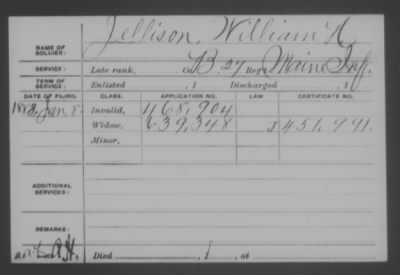 Jellison, William H
NAME OF SOLDIER:
SERVICE: Late rank, Co. B, 27 Reg't Maine Inf.
TERM OF SERVICE: Enlisted , 1 Discharged , 1
DATE OF FILING. CLASS. APPLICATION NO. LAW CERTIFICATE NO.
Jan 8. Invalid, 468,904
Widow, 639,348 451,941.
Minor,
ADDITIONAL SERVICES:
REMARKS:
Died , 1 , at